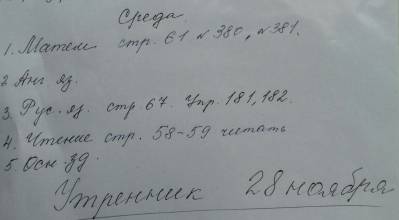 Среда
1. Матем стр. 61 № 380, № 381.
2 Анг яз.
3. Рус. яз. стр 67. Упр. 181, 182.
4. Чтение стр. 58-59 читать
5. Осн. зд.
Утренник 28 ноября